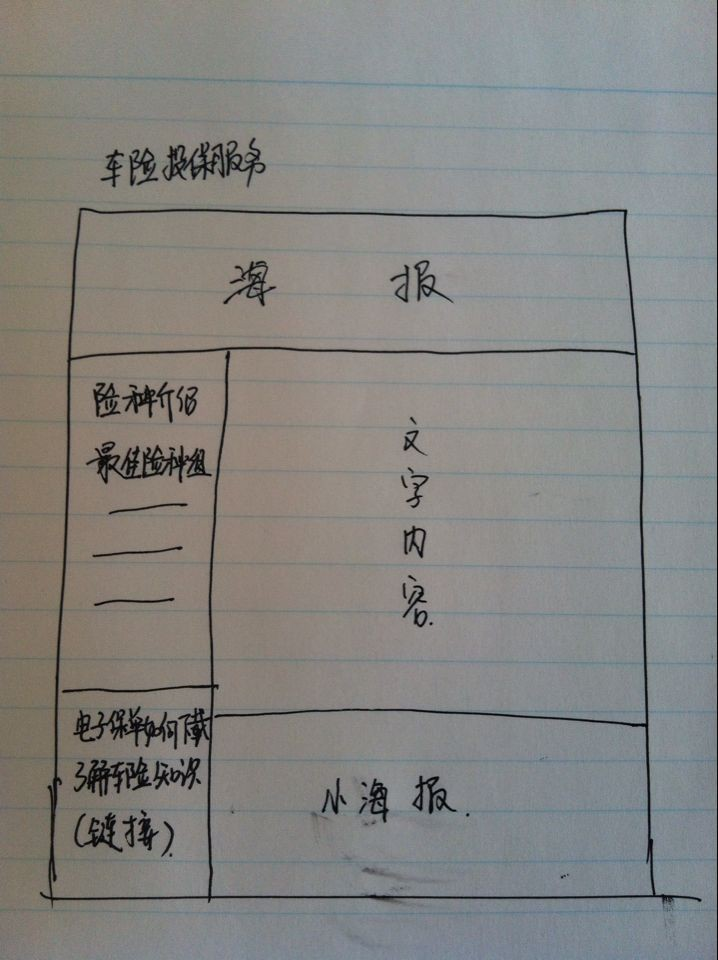 车险投保服务
海 报
险种介绍
最佳险种组
文字内容.
电子保单如何下载
了解车险知识
(链接)
小海报.